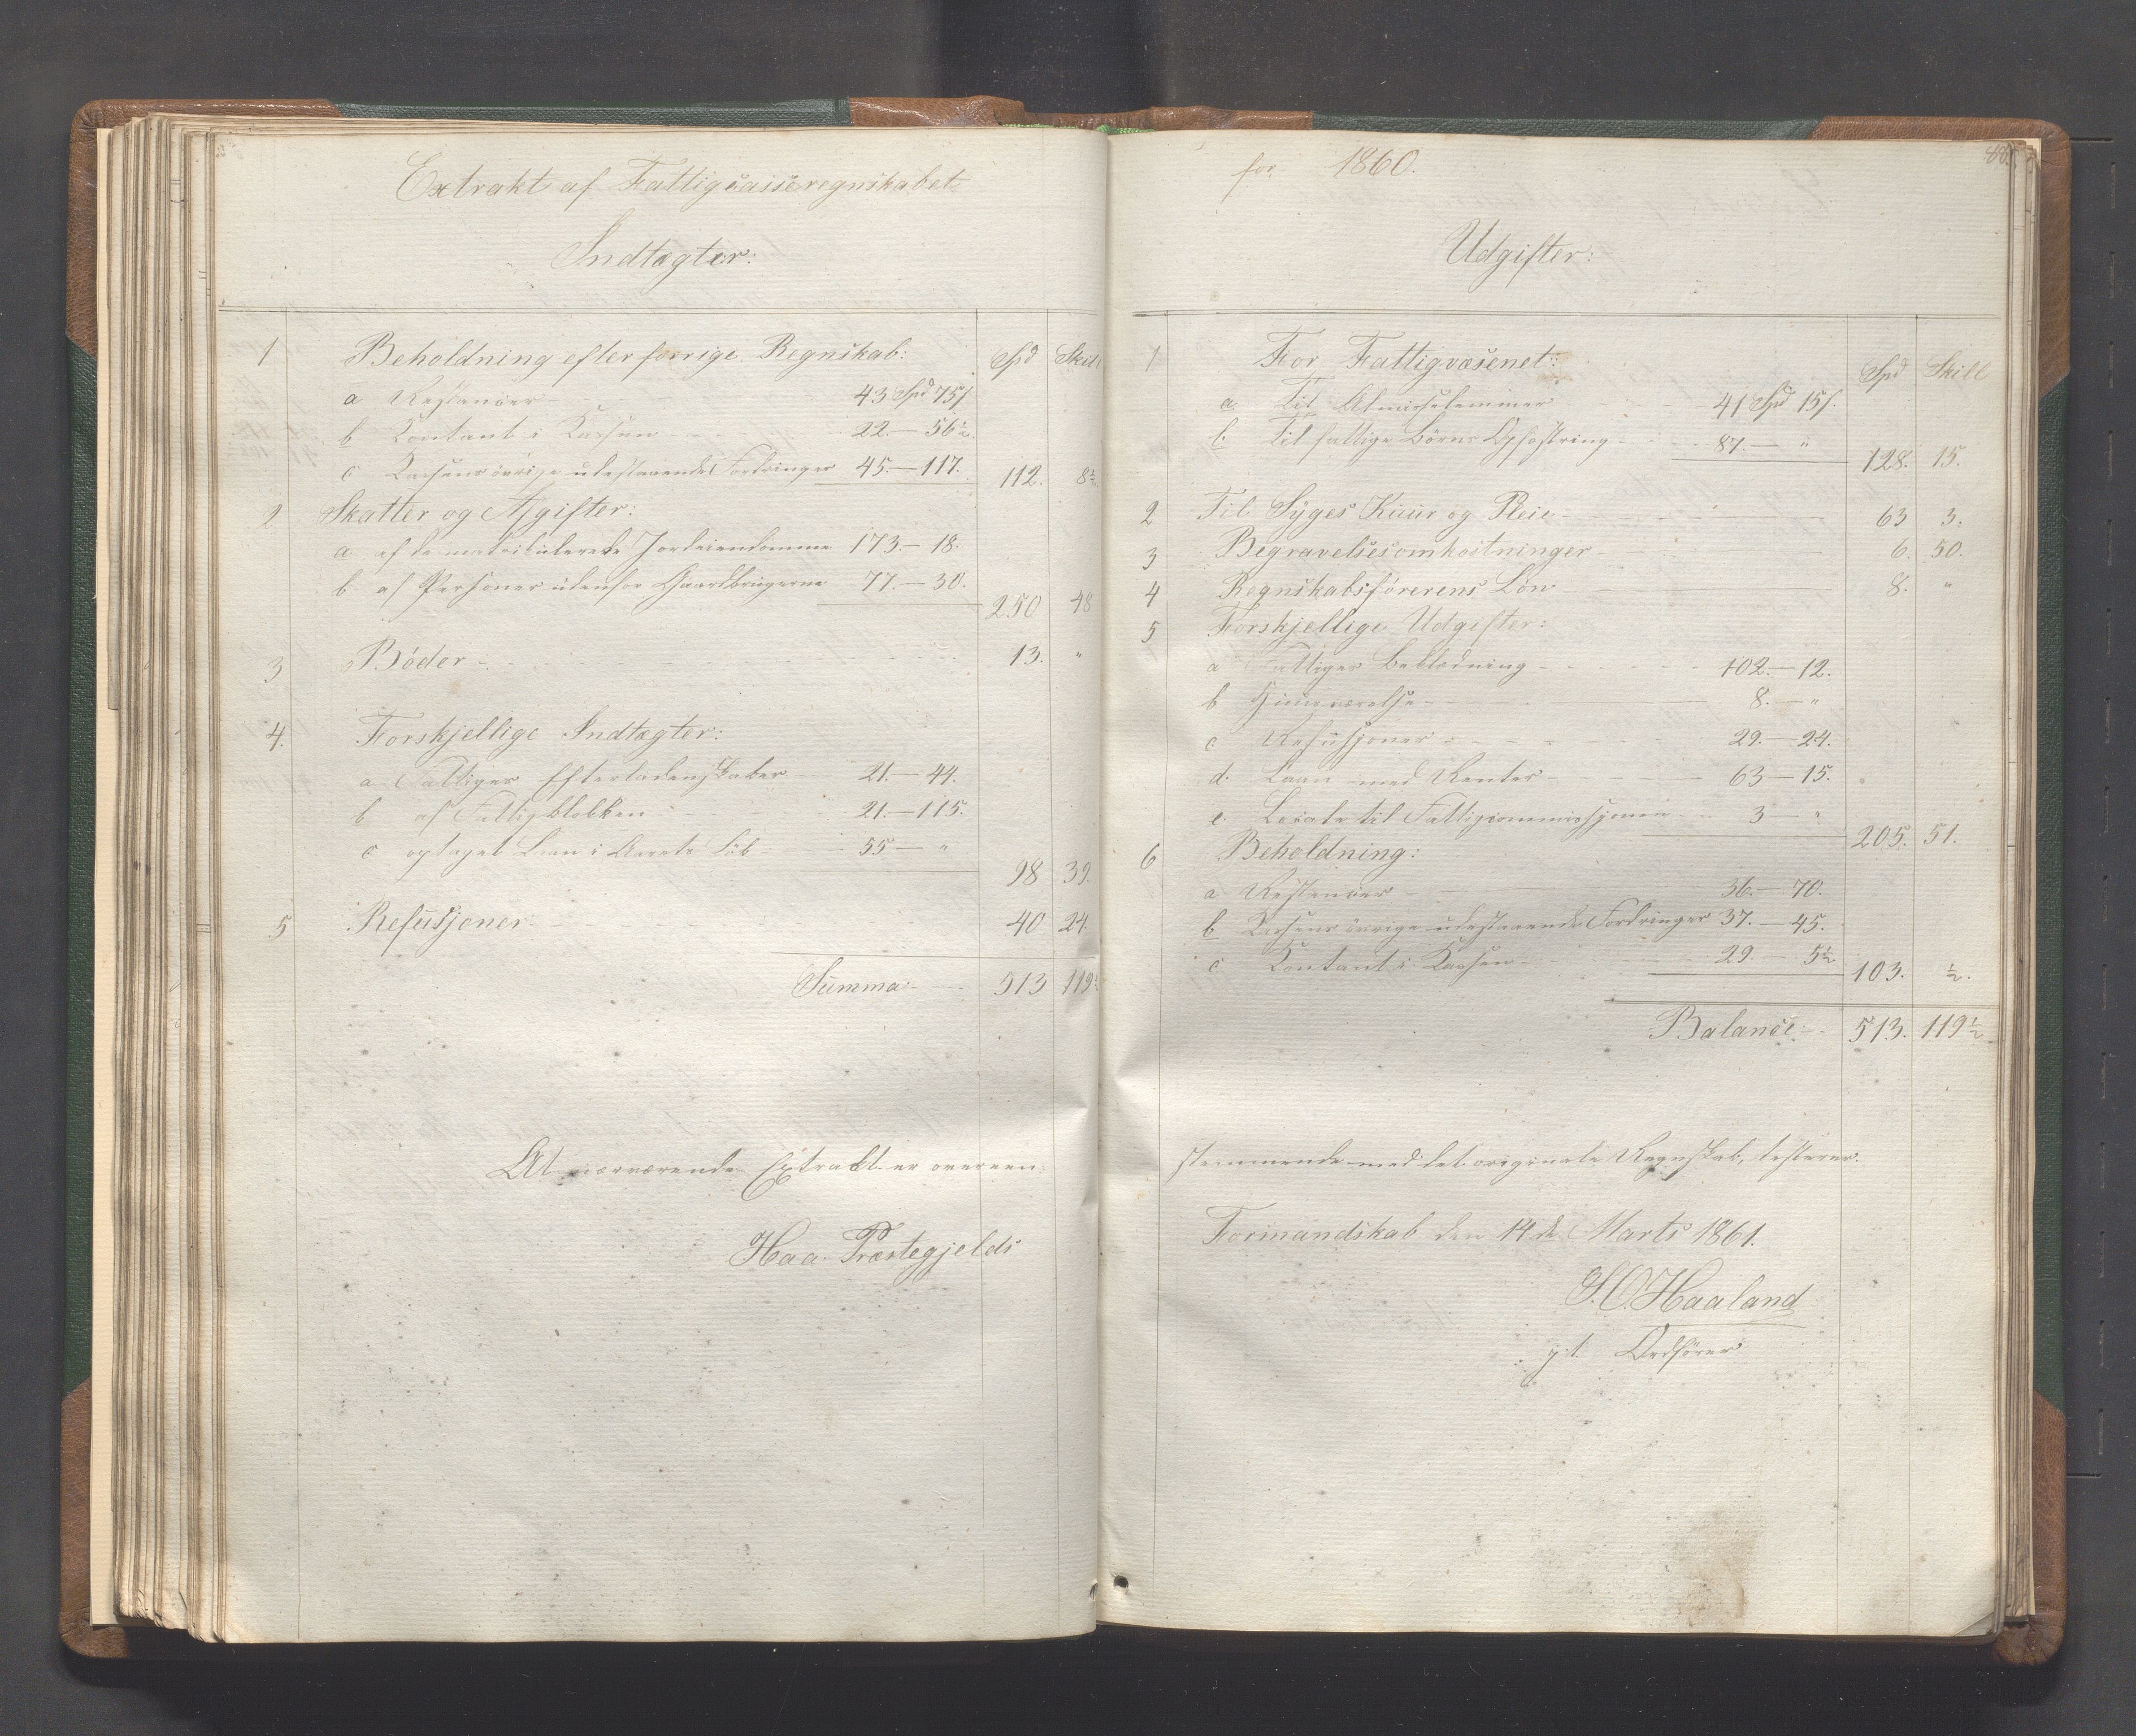 Extrakt af Fattigcasseregnskabet
Indtægter:
Spd Skill
1 Beholdning efter forrige Regnskab:
a Restancer 43 Spd 75/
b Contant i Kassen 22.— 56½.
c Kassens övrige udestaaende Fordringer 45.— 117. 112. 8½
2 Skatter og Afgifter:
a af de matrikulerede Jordeiendomme 173.— 18.
b af Personer udenfor Gaardbrugerne 77.— 30. 250 48
3 Böder 13. "
4. Forskjellige Indtægter:
a Fattiges Efterladenskaber 21.— 44.
b af Fattigblokken 21.— 115.
c optaget Laan i Aarets Löb 55 — " 98 39.
5 Refusjoner 40 24.
Summa 513 119½
At nærværende Extrakt er overeen
Haa Præstegjelds
for 1860.
88.
Udgifter:
Spd Skill
1 For Fattigvæsenet:
a Til Almisselemmer 41 Spd 15/.
b. Til fattige Börns Opfostring 87.— " 128. 15.
2 Til Syges Kuur og Pleie 63 3.
3 Begravelsesomkostninger 6. 50.
4 Regnskabsförerens Lön 8. "
5 Forskjellige Udgifter:
a Fattiges Beklædning 102.— 12.
b Huusværelse 8.— "
c Refusjoner 29.— 24.
d. Laan med Renter 63 — 15.
e. Locale til Fattigcommissjonen 3 — " 205. 51.
6 Beholdning:
a Restancer 36.— 70.
b Kassens övrige udestaaende Fordringer 37.— 45.
c Kontant i Kassen 29.— 5½ 103. ½.
Balance: 513. 119½
stemmende med det originale Regnskab, testerer.
Formandskab den 14de Marts 1861.
S. O. Haaland
p. t. Ordförer